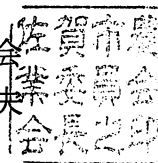 佐賀市農
業委員会
会長之印